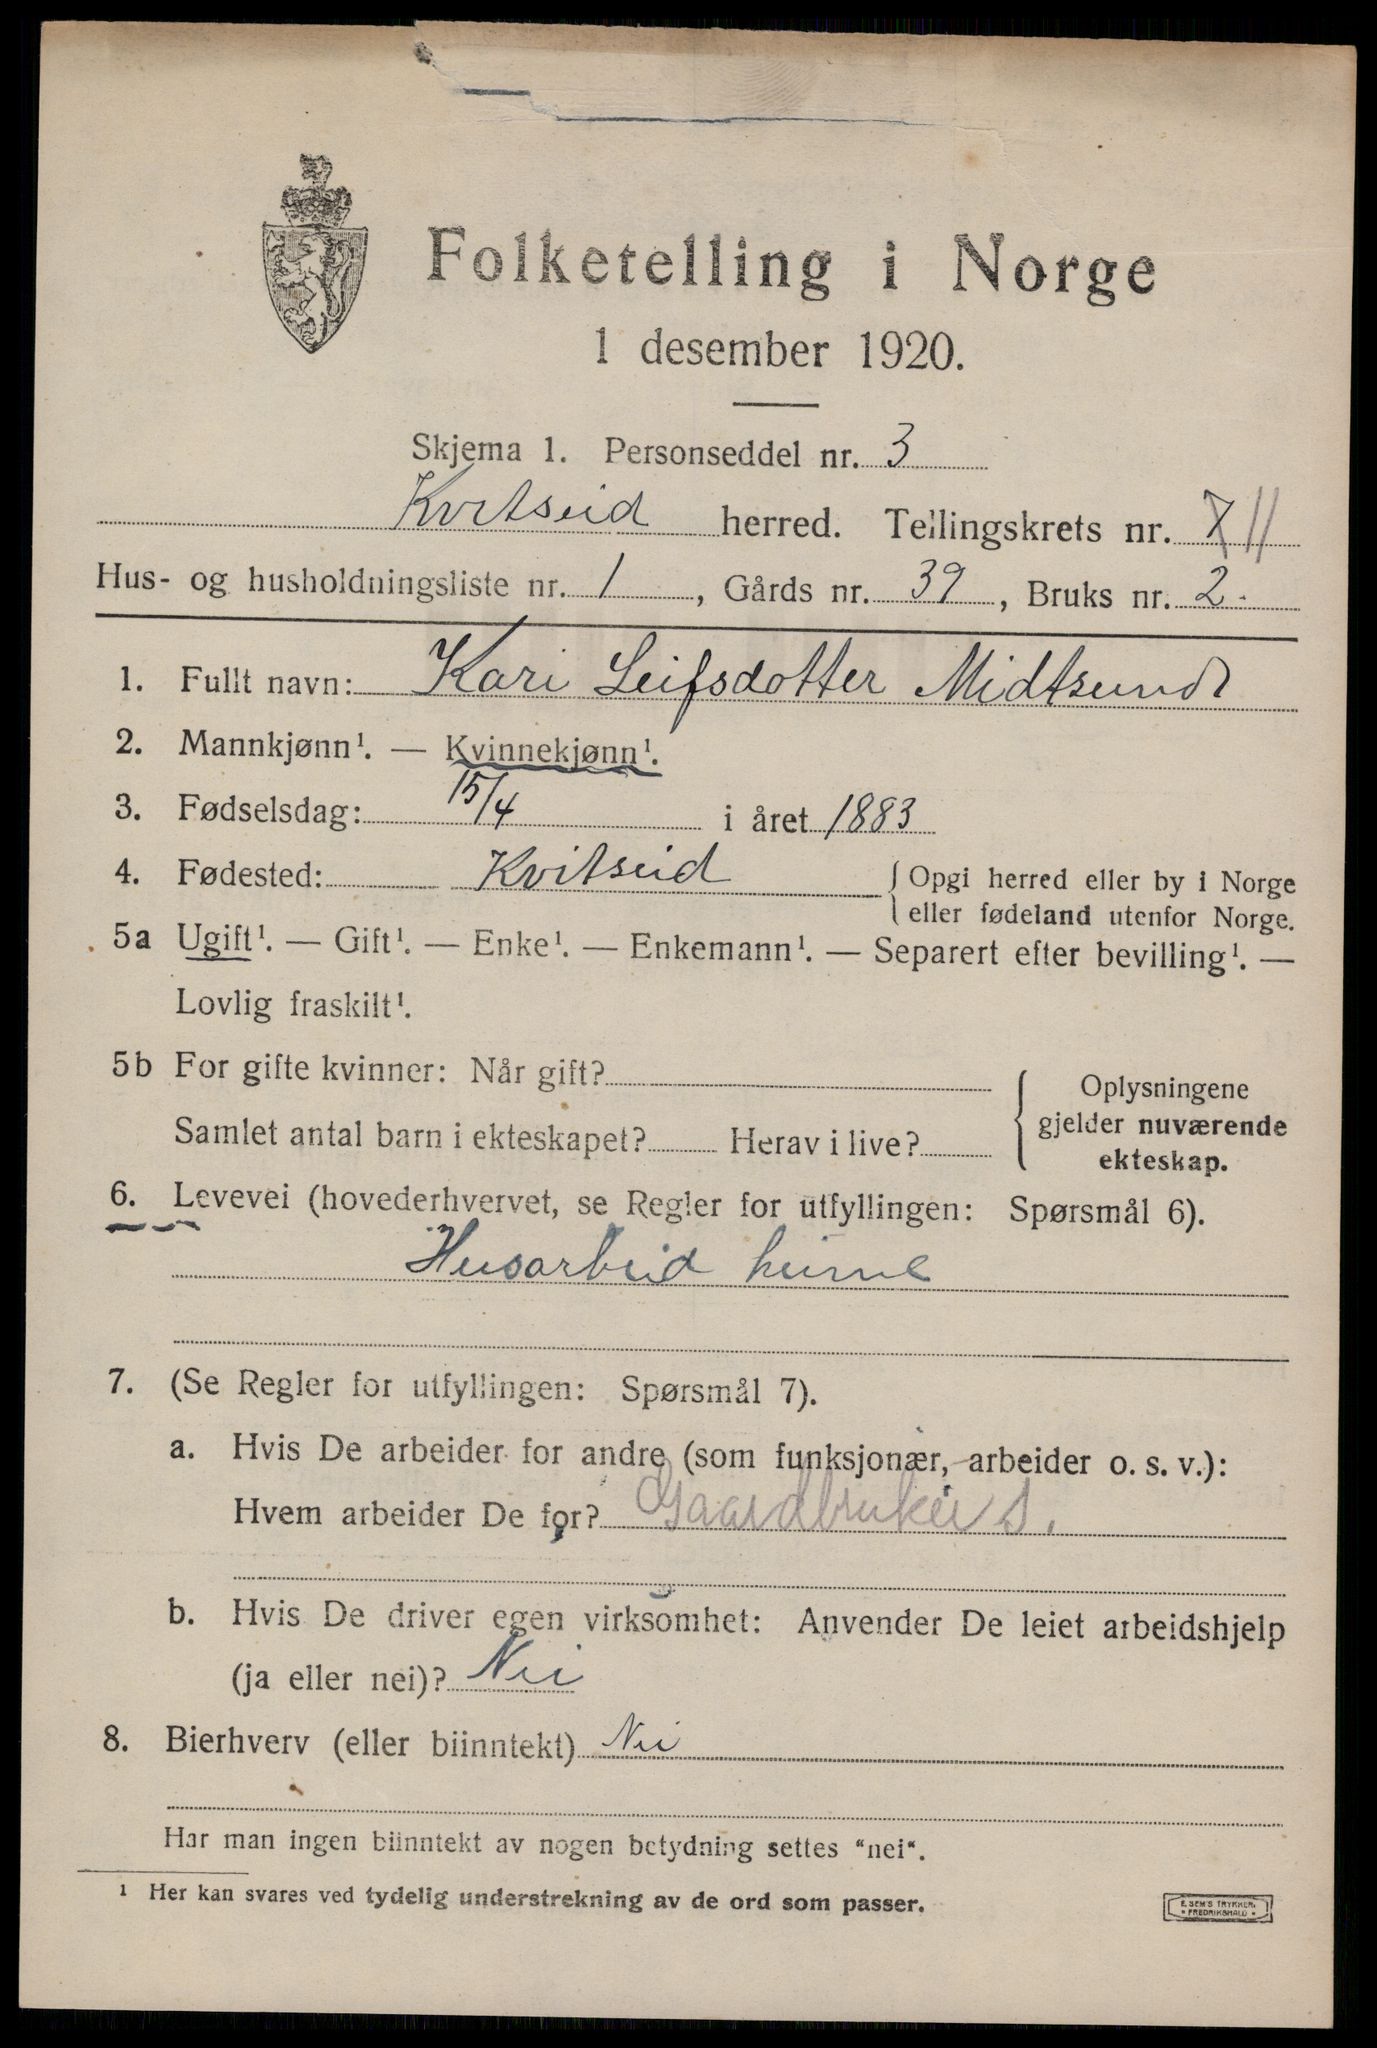 Folketelling i Norge
1 desember 1920.
Skjema 1. Personseddel nr. 3
Kvitseid herred. Tellingskrets nr. 7 11
Hus- og husholdningsliste nr. 1, Gårds nr. 39, Bruks nr. 2.
1. Fullt navn: Kari Leifsdotter Midtsund
2. Mannkjønn¹. — Kvinnekjønn¹.
3. Fødselsdag: 15/4 i året 1883
4. Fødested: Kvitseid { Opgi herred eller by i Norge
eller fødeland utenfor Norge.
5a Ugift¹. — Gift¹. — Enke¹. — Enkemann¹. — Separert efter bevilling¹. —
Lovlig fraskilt¹.
5b For gifte kvinner: Når gift?
Samlet antal barn i ekteskapet? Herav i live?
{ Oplysningene
gjelder nuværende
ekteskap.
6. Levevei (hovederhvervet, se Regler for utfyllingen: Spørsmål 6).
Husarbeid heime
7. (Se Regler for utfyllingen: Spørsmål 7).
a. Hvis De arbeider for andre (som funksjonær, arbeider o. s. v.):
Hvem arbeider De for? Gaardbruker s.
b. Hvis De driver egen virksomhet: Anvender De leiet arbeidshjelp
(ja eller nei)? Nei
8. Bierhverv (eller biinntekt) Nei
Har man ingen biinntekt av nogen betydning settes "nei".
¹ Her kan svares ved tydelig understrekning av de ord som passer.
E. SEM'S TRYKKERI
• FREDRIKSHALD •